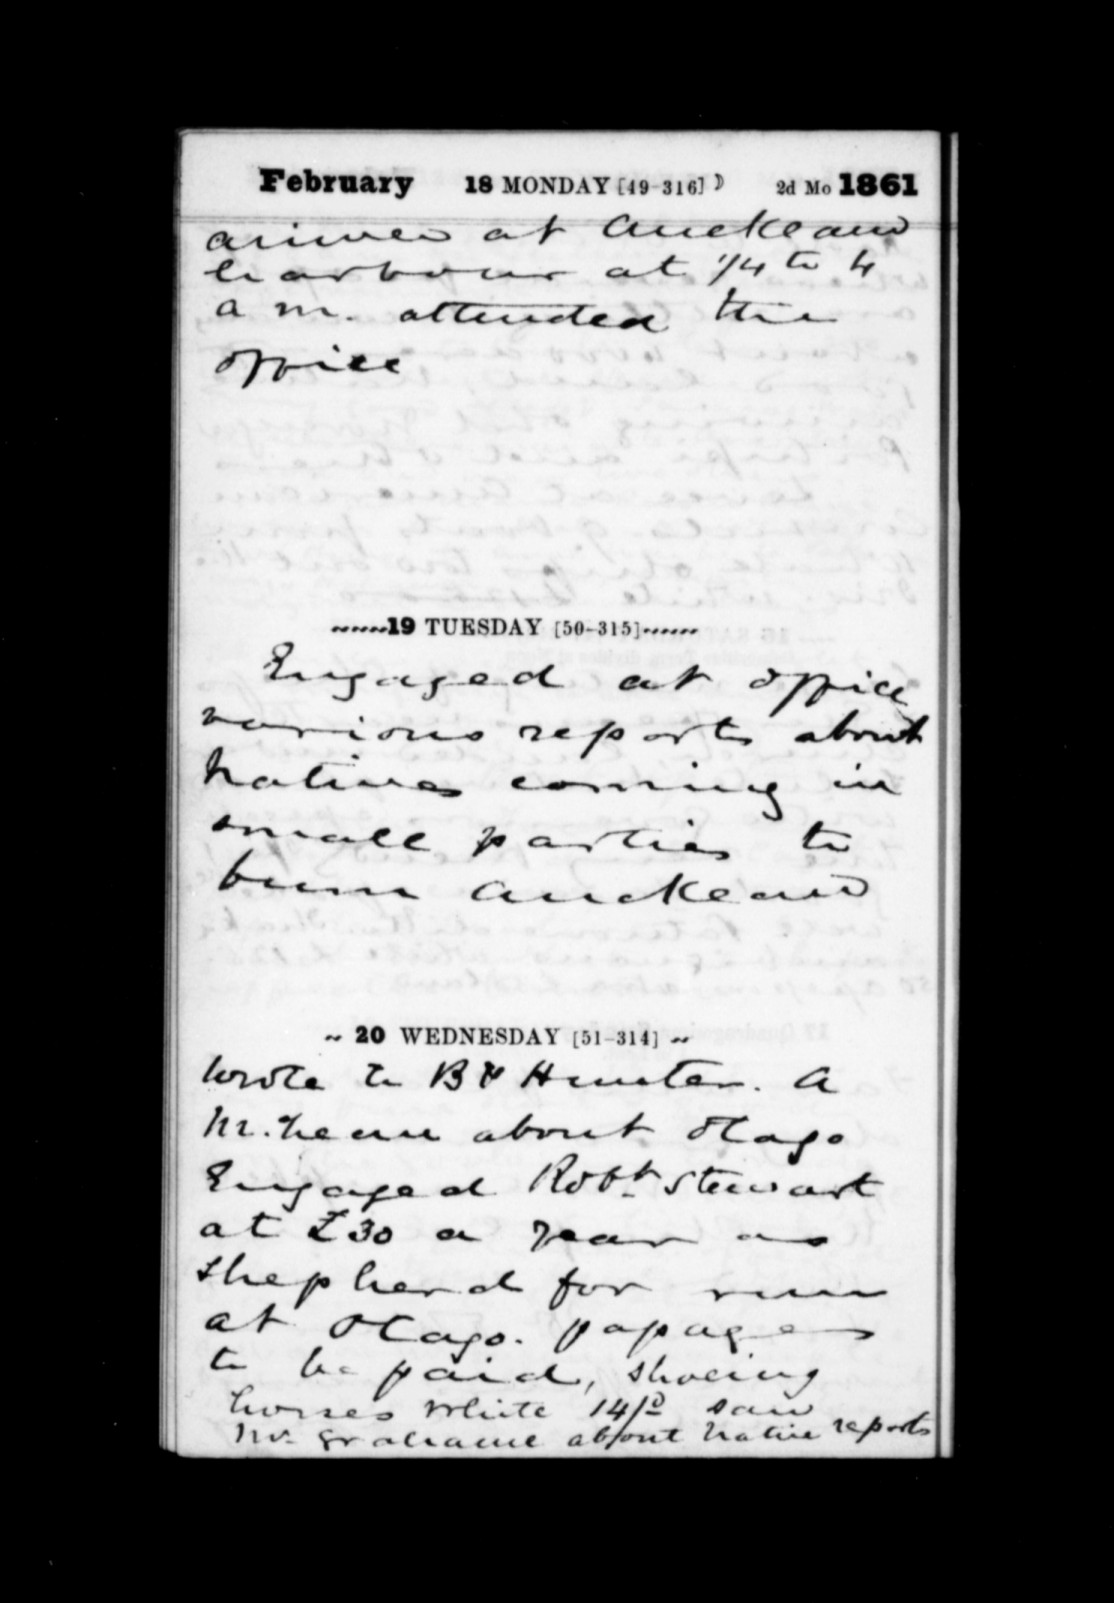 February 18 MONDAY [49-316] ) 2d Mo 1861
arrived at Auckland
harbour at 1/4 to 4
a m. attended the
office
19 TUESDAY [50-315]
Engaged at office
various reports about
Natives coming in
small parties to
burn Auckland
20 WEDNESDAY [51-314]
wrote to B & Hunter. A
McLean about Otago
Engaged Robt. Stewart
at £30 a year as
shepherd for run
at Otago. passage
to be paid, shoeing
horses White 14/- saw
Mr. Grahame about Native reports